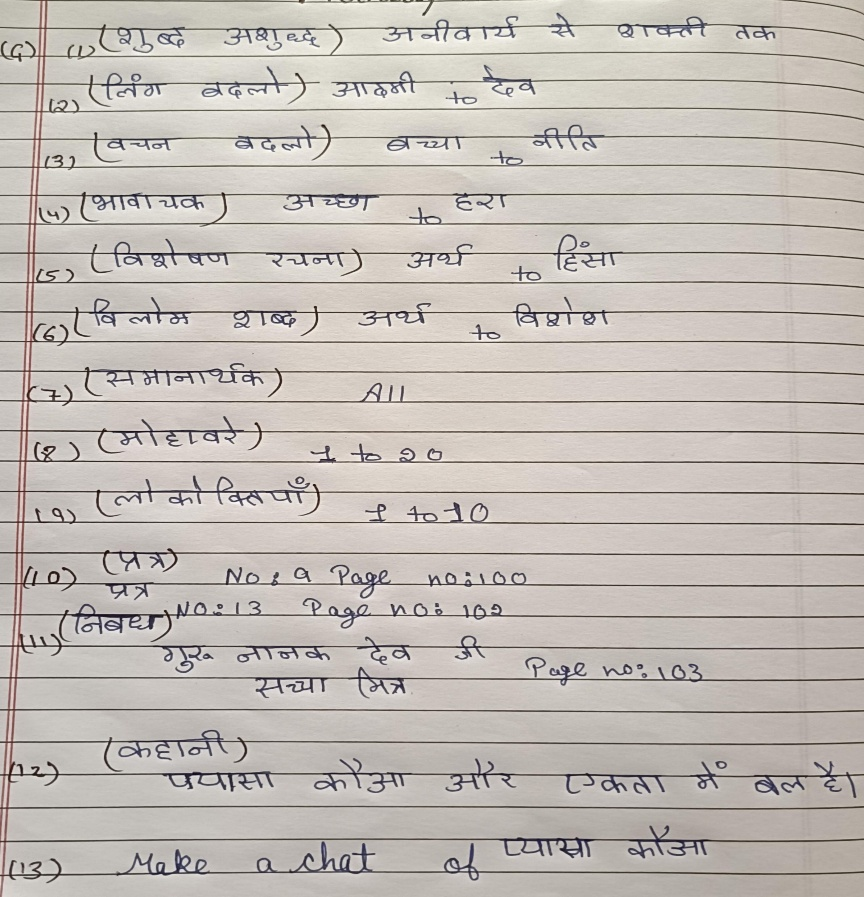 (G) (1) (शुब्द अशुध्द) अनीवार्य से शक्ती तक
(2) (लिंग बदलो) आदमी to देव
(3) (वचन बदलो) बच्चा to नीति
(4) (भावाचक) अच्छा to हरा
(5) (विशेषण रचना) अर्थ to हिंसा
(6) (बिलोम शब्द) अर्थ to विशेश
(7) (समानार्थक) All
(8) (मोहावरे) 1 to 20
(9) (लोकोक्तियाँ) 1 to 10
(10) (प्रत्र)
प्रत्र No: 9 Page no: 100
(11) (निबध) No: 13 Page no: 102
गुरु नानक देव जी
सच्चा मित्र Page no: 103
(12) (कहानी)
पयासा कौआ और एकता में बल है।
(13) Make a chat of प्यासा कौआ